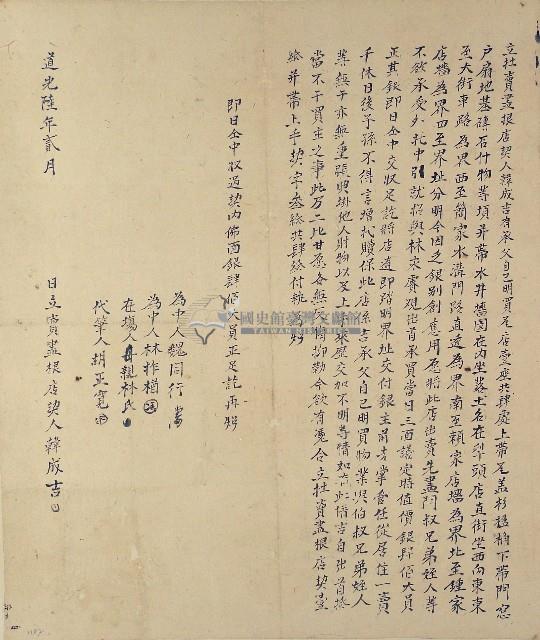 立杜賣盡根店契人韓成吉有承父自己明買瓦店壹座共肆處上帶瓦蓋杉楹桷下帶門窓
戶扇地基磚石什物等項并帶水井牆圍在內坐落土名在犁頭店直街坐西向東東
至大街車路為界西至簡家水溝門路直透為界南至賴家店牆為界北至鍾家
店牆為界四至界址分明今因乏銀別創應用愿將此店出賣先盡問叔兄弟姪人等
不欲承受外托中引就招與林來賽觀出首承買當日三面議定時值價銀肆佰大員
正其銀即日仝中交收足訖將店遺即踏明界址交付銀主前去掌管任從居住一賣
千休日後子孫不得言增找贖保此店係吉承父自己明買物業與伯叔兄弟姪人
等無干亦無重張典掛他人財物以及上手來歷交加不明等情如有此情吉自出首抵
當不干買主之事此乃二比甘愿各無反悔抑勒今欲有憑合立杜賣盡根店契壹
紙并帶上手契字叁紙共肆紙付執為炤
即日仝中收過契內佛面銀肆佰大員正足訖再炤
為中人魏同行
為中人林作楫
在場人母親林氏
代筆人胡正寬
道光陸年貳月 日立賣盡根店契人韓成吉
國史館臺灣文獻館
TAIWAN HISTORICA